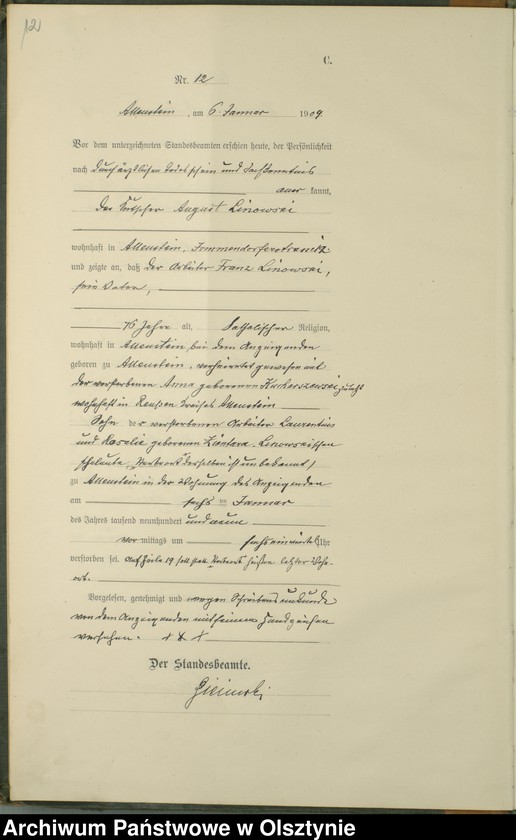 12
C.
Nr. 12
Allenstein, am 6. Januar 1909.
Vor dem unterzeichneten Standesbeamten erschien heute, der Persönlichkeit
nach durch ärztlichen Todesschein und
aner kannt,
der Kutscher August Linowski
wohnhaft in Allenstein,
und zeigte an, daß der Arbeiter Franz Linowski,
sein Vater,
76 Jahre alt, katholischer Religion,
wohnhaft in Allenstein, bei dem Anzeigenden
geboren zu Allenstein, verheiratet gewesen mit
der verstorbenen Anna geborenen zuletzt
wohnhaft in Reussen Kreises Allenstein
Sohn der verstorbenen Arbeiter Laurentius
und Rosalie geborenen Linowskischen
Eheleute, derselben ist unbekannt,
zu Allenstein in der Wohnung des Anzeigenden
am sechs ten Januar
des Jahres tausend neunhundert und neun
vor mittags um sechs ein viertel Uhr
verstorben sei. Auf Zeile 19 soll statt heißen letzter Wohn-
ort.
Vorgelesen, genehmigt und wegen Schreibensunkunde
von dem Anzeigenden mit seinem Handzeichen
versehen. + + +
Der Standesbeamte.
Archiwum Państwowe w Olsztynie